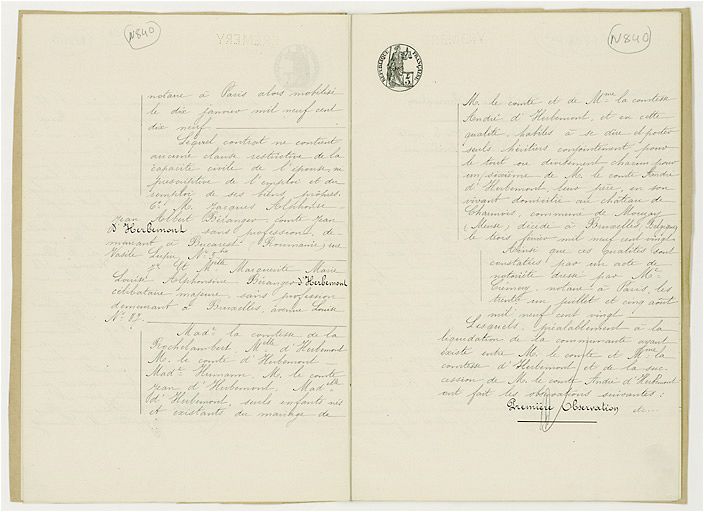 N840
notaire à Paris alors mobilisé
le dix janvier mil neuf cent
dix neuf.
Lequel contrat ne contient
aucune clause restrictive de la
capacité civile de l'épouse, ni
prescriptive de l'emploi et du
remploi de ses biens propres.
6° M. Jacques Alphonse
Jean Albert Béranger, comte Jean
d'Herbemont sans profession, de-
meurant à Bucarest Roumanie, rue
Vasile Lupu, N°
7° Et Melle Marguerite Marie
Louise Alphonsine Béranger d'Herbemont
célibataire majeure, sans profession
demeurant à Bruxelles, avenue Louise
N° 87.
Made la comtesse de la
Rochelambert, Melle d'Herbemont
M. le comte d'Herbemont
Made Humann, M. le comte
Jean d'Herbemont, Madelle
d'Herbemont, seuls enfants nés
et existants du mariage de
N840
RÉPUBLIQUE FRANÇAISE
M. le comte et de Mme la comtesse
André d'Herbemont, et en cette
qualité, habiles à se dire et porter
seuls héritiers conjointement pour
le tout ou divisément chacun pour
un sixième de M. le comte André
d'Herbemont, leur père, en son
vivant domicilié au château de
Charmois, commune de Mouzay
(Meuse) décédé à Bruxelles, Belgique
le trois février mil neuf cent vingt
Ainsi que ces qualités sont
constatées par un acte de
notoriété dressé par Me
Trémery, notaire à Paris, les
trente un juillet et cinq août
mil neuf cent vingt
Lesquels, préalablement à la
liquidation de la communauté ayant
existé entre M. le comte et Mme la
comtesse d'Herbemont et de la suc-
cession de M. le comte André d'Herbemont
ont fait les observations suivantes :
Première Observation